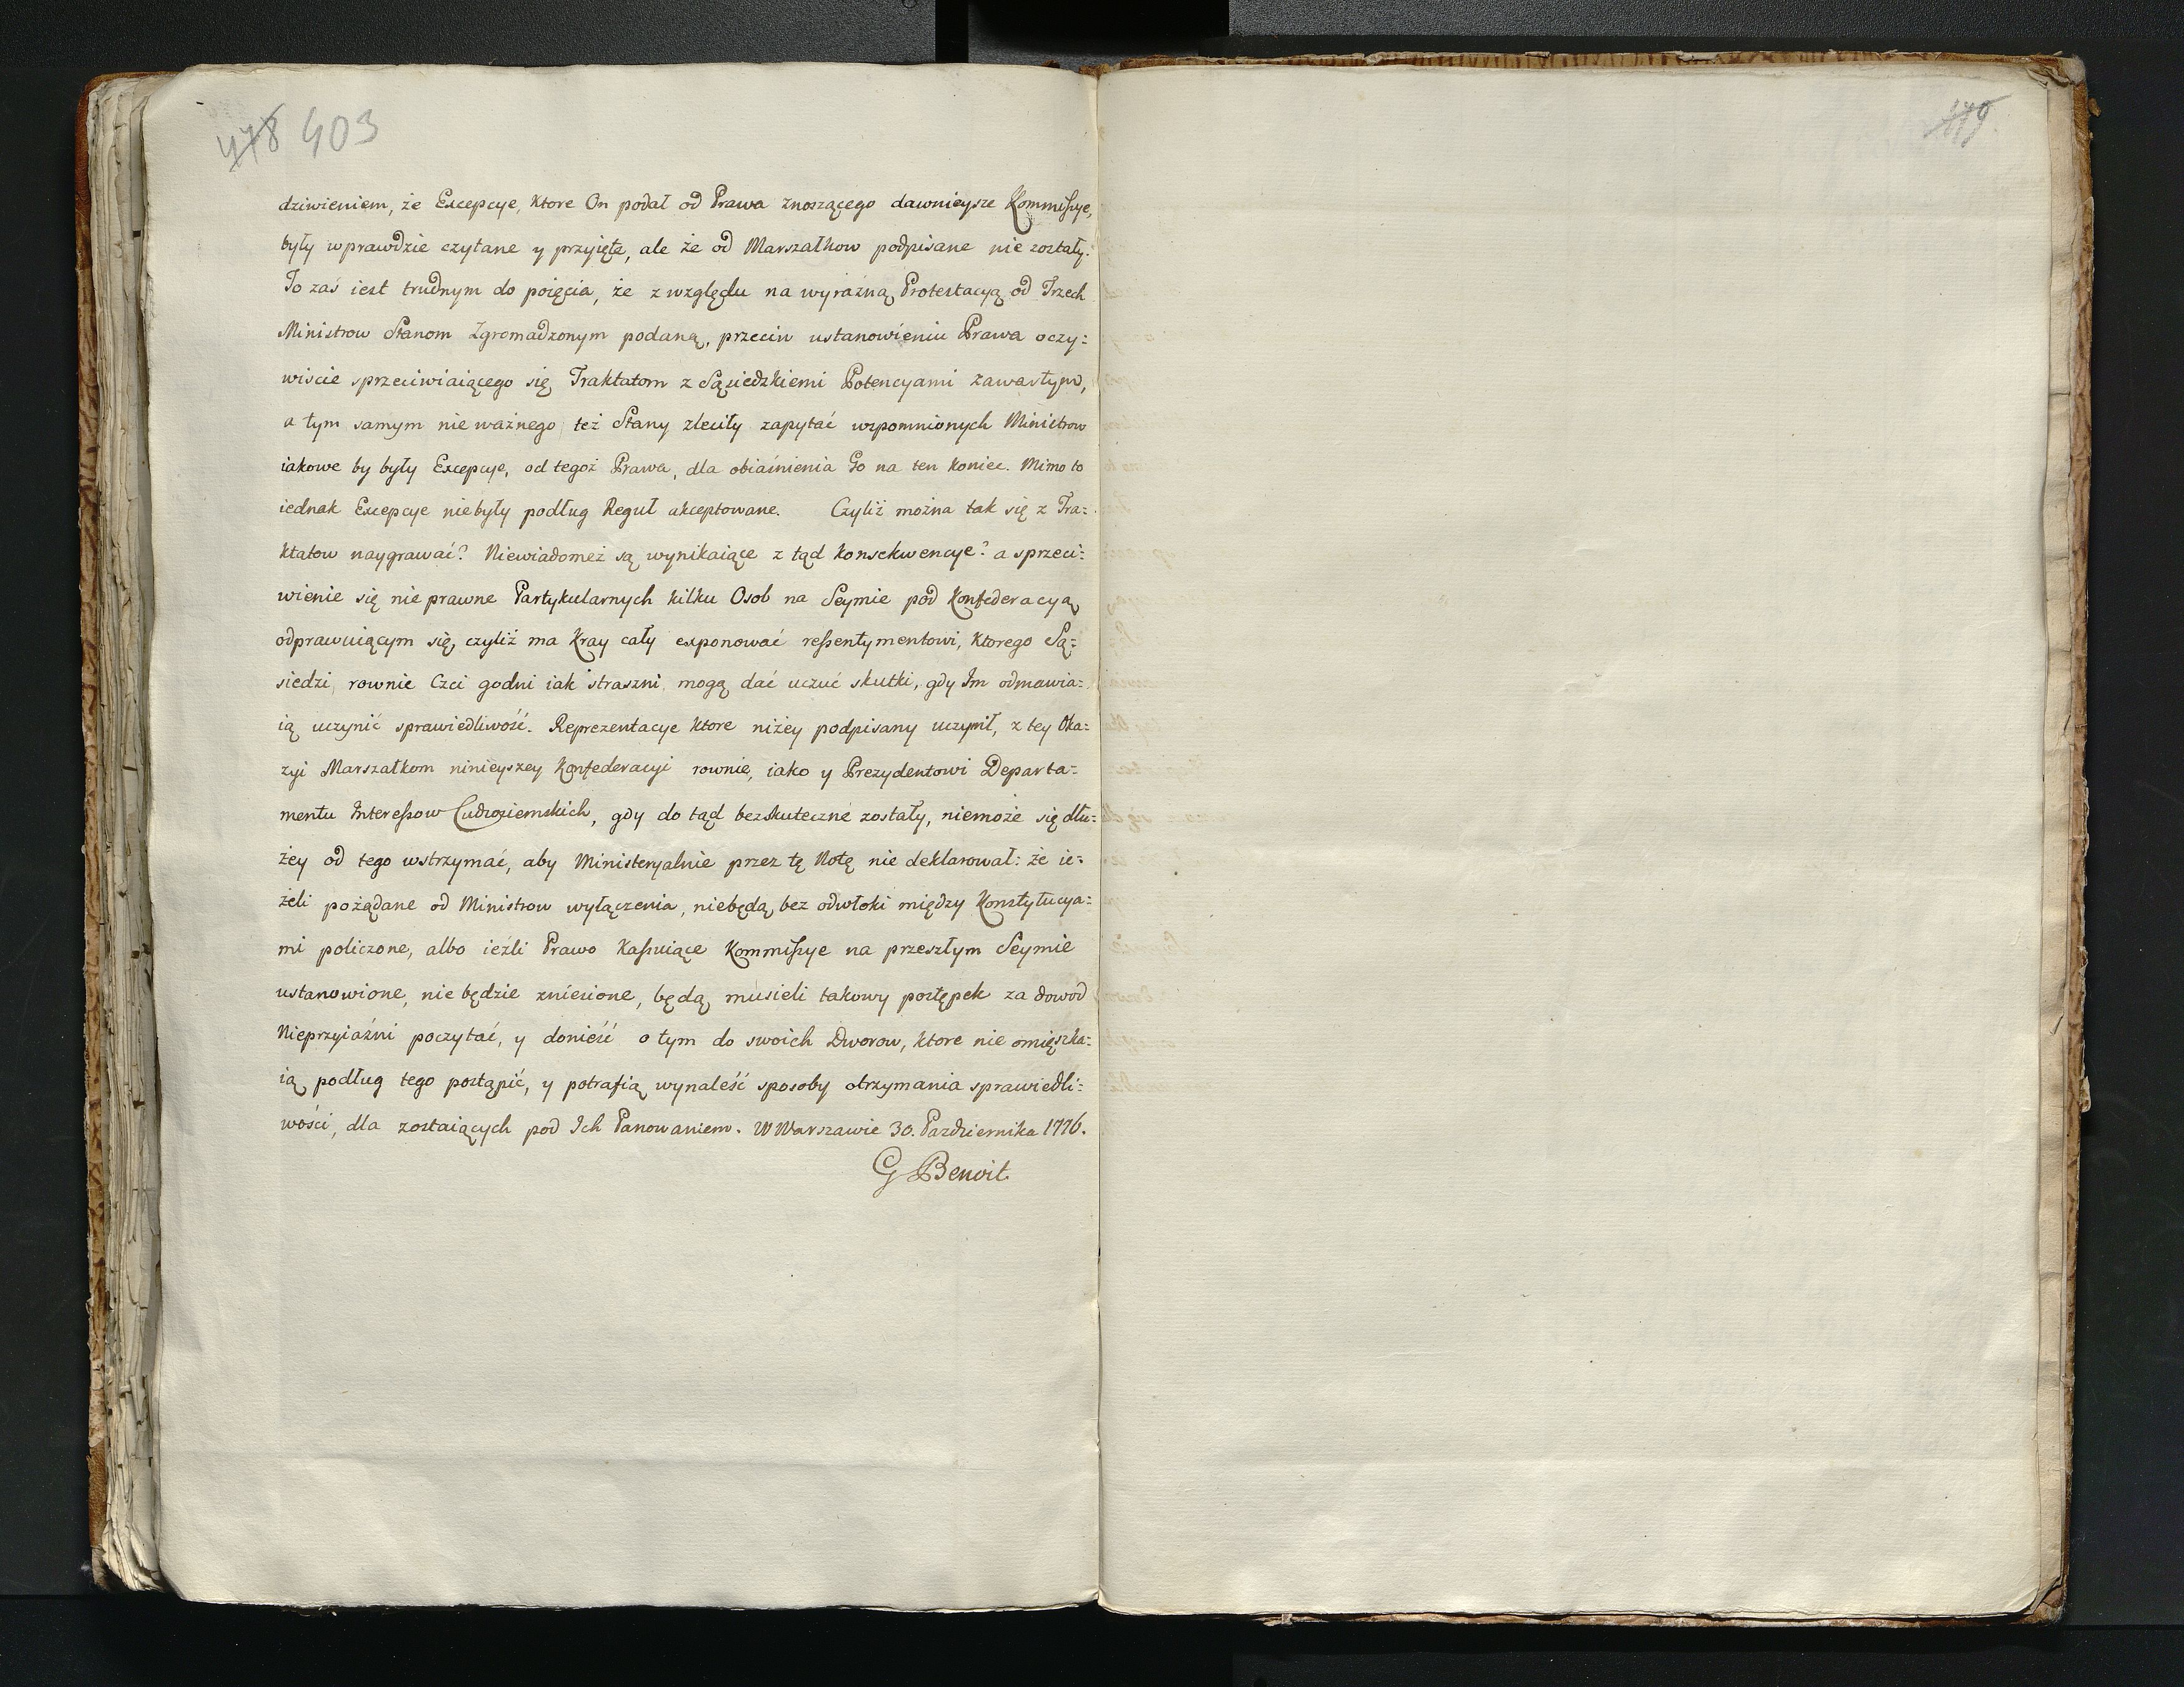 478 403
479
dziwieniem, że Excepcye, ktore On podał od Prawa znoszącego dawnieysze Kommißye,
były wprawdzie czytane y przyięte, ale że od Marszałkow podpisane nie zostały.
To zaś iest trudnym do poięcia, że z względu na wyraźną Protestacyą od Trzech
Ministrow Stanom Zgromadzonym podaną, przeciw ustanowieniu Prawa oczy:
wiscie sprzeciwiaiącego się Traktatom z Sąsiedzkiemi Potencyami zawartym,
a tym samym nie ważnego też Stany zleciły zapytać wspomnionych Ministrow
iakowe by były Excepcye, od tegoż Prawa, dla obiaśnienia Go na ten koniec. Mimo to
iednak Excepcye niebyły podług Reguł akceptowane. Czyliż można tak się z Tra:
ktatow naygrawać? Niewiadomeż są wynikaiące z tąd konsekwencye? a sprzeci:
wienie się nie prawne Partykularnych kilku Osob na Seymie pod Konfederacyą
odprawuiącym się, czyliż ma Kray cały exponować reßentymentowi, ktorego Są:
siedzi, rownie Czci godni iak straszni, mogą dać uczuć skutki, gdy Im odmawia:
ią uczynić sprawiedliwość. Reprezentacye ktore niżey podpisany uczynił, z tey Oka:
zyi Marszałkom ninieyszey Konfederacyi rownie, iako y Prezydentowi Departa:
mentu Intereßow Cudzoziemskich, gdy do tąd bezskuteczne zostały, niemoże się dłu:
żey od tego wstrzymać, aby Ministeryalnie przez tę Notę nie deklarował: że ie:
żeli pożądane od Ministrow wyłączenia, niebędą bez odwłoki między Konstytucya:
mi policzone, albo ieźli Prawo Kaßuiące Kommißye na przeszłym Seymie
ustanowione, nie będzie zniesione, będą musieli takowy postępek za dowod
Nieprzyiaźni poczytać, y donieść o tym do swoich Dworow, ktore nie omięszka:
ią podług tego postąpić, y potrafią wynaleść sposoby otrzymania sprawiedli:
wości, dla zostaiących pod Ich Panowaniem. W Warszawie 30. Pazdziernika 1776.
G Benoit